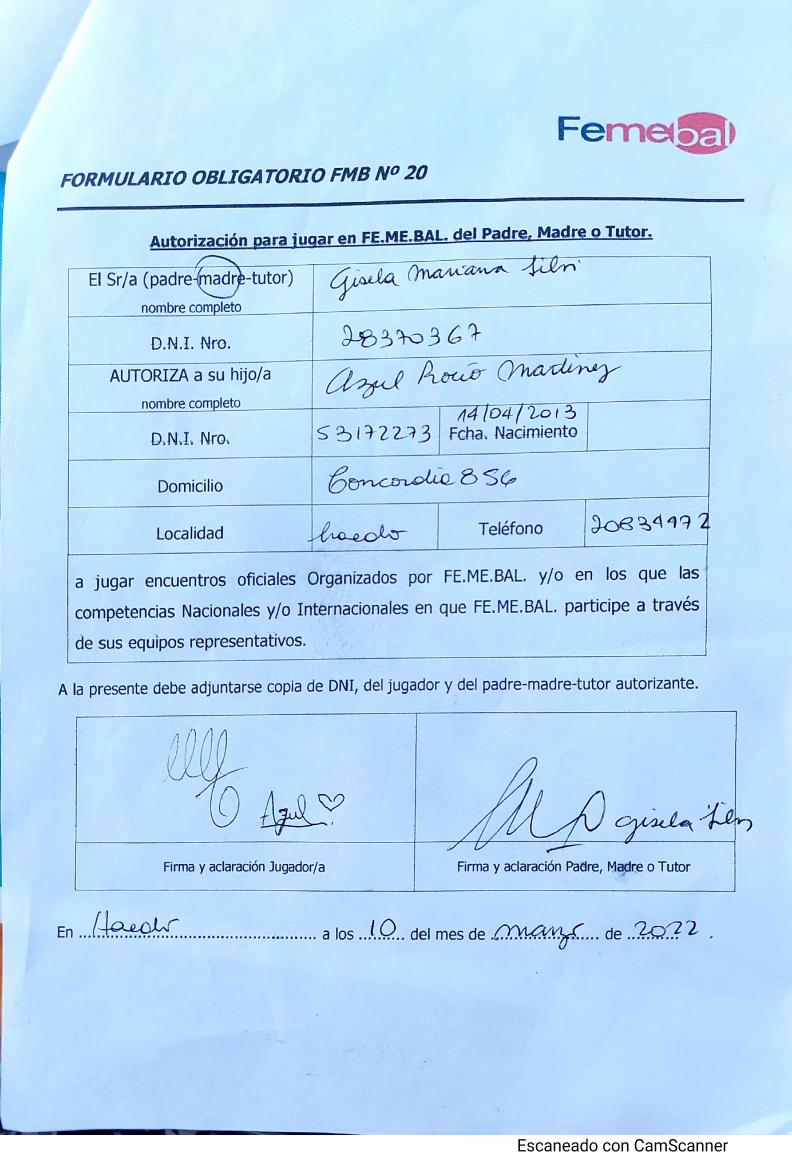 Femebal
FORMULARIO OBLIGATORIO FMB Nº 20
Autorización para jugar en FE.ME.BAL. del Padre, Madre o Tutor.
El Sr/a (padre-madre-tutor) Gisela Mariana
nombre completo
D.N.I. Nro. 28370367
AUTORIZA a su hijo/a Azul Rocío Martinez
nombre completo
D.N.I. Nro. 53172273 14/04/2013
Fcha. Nacimiento
Domicilio Concordia 856
Localidad haedo Teléfono 20834972
a jugar encuentros oficiales Organizados por FE.ME.BAL. y/o en los que las
competencias Nacionales y/o Internacionales en que FE.ME.BAL. participe a través
de sus equipos representativos.
A la presente debe adjuntarse copia de DNI, del jugador y del padre-madre-tutor autorizante.
Azul gisela
Firma y aclaración Jugador/a Firma y aclaración Padre, Madre o Tutor
En Haedo a los 10 del mes de marzo de 2022.
Escaneado con CamScanner